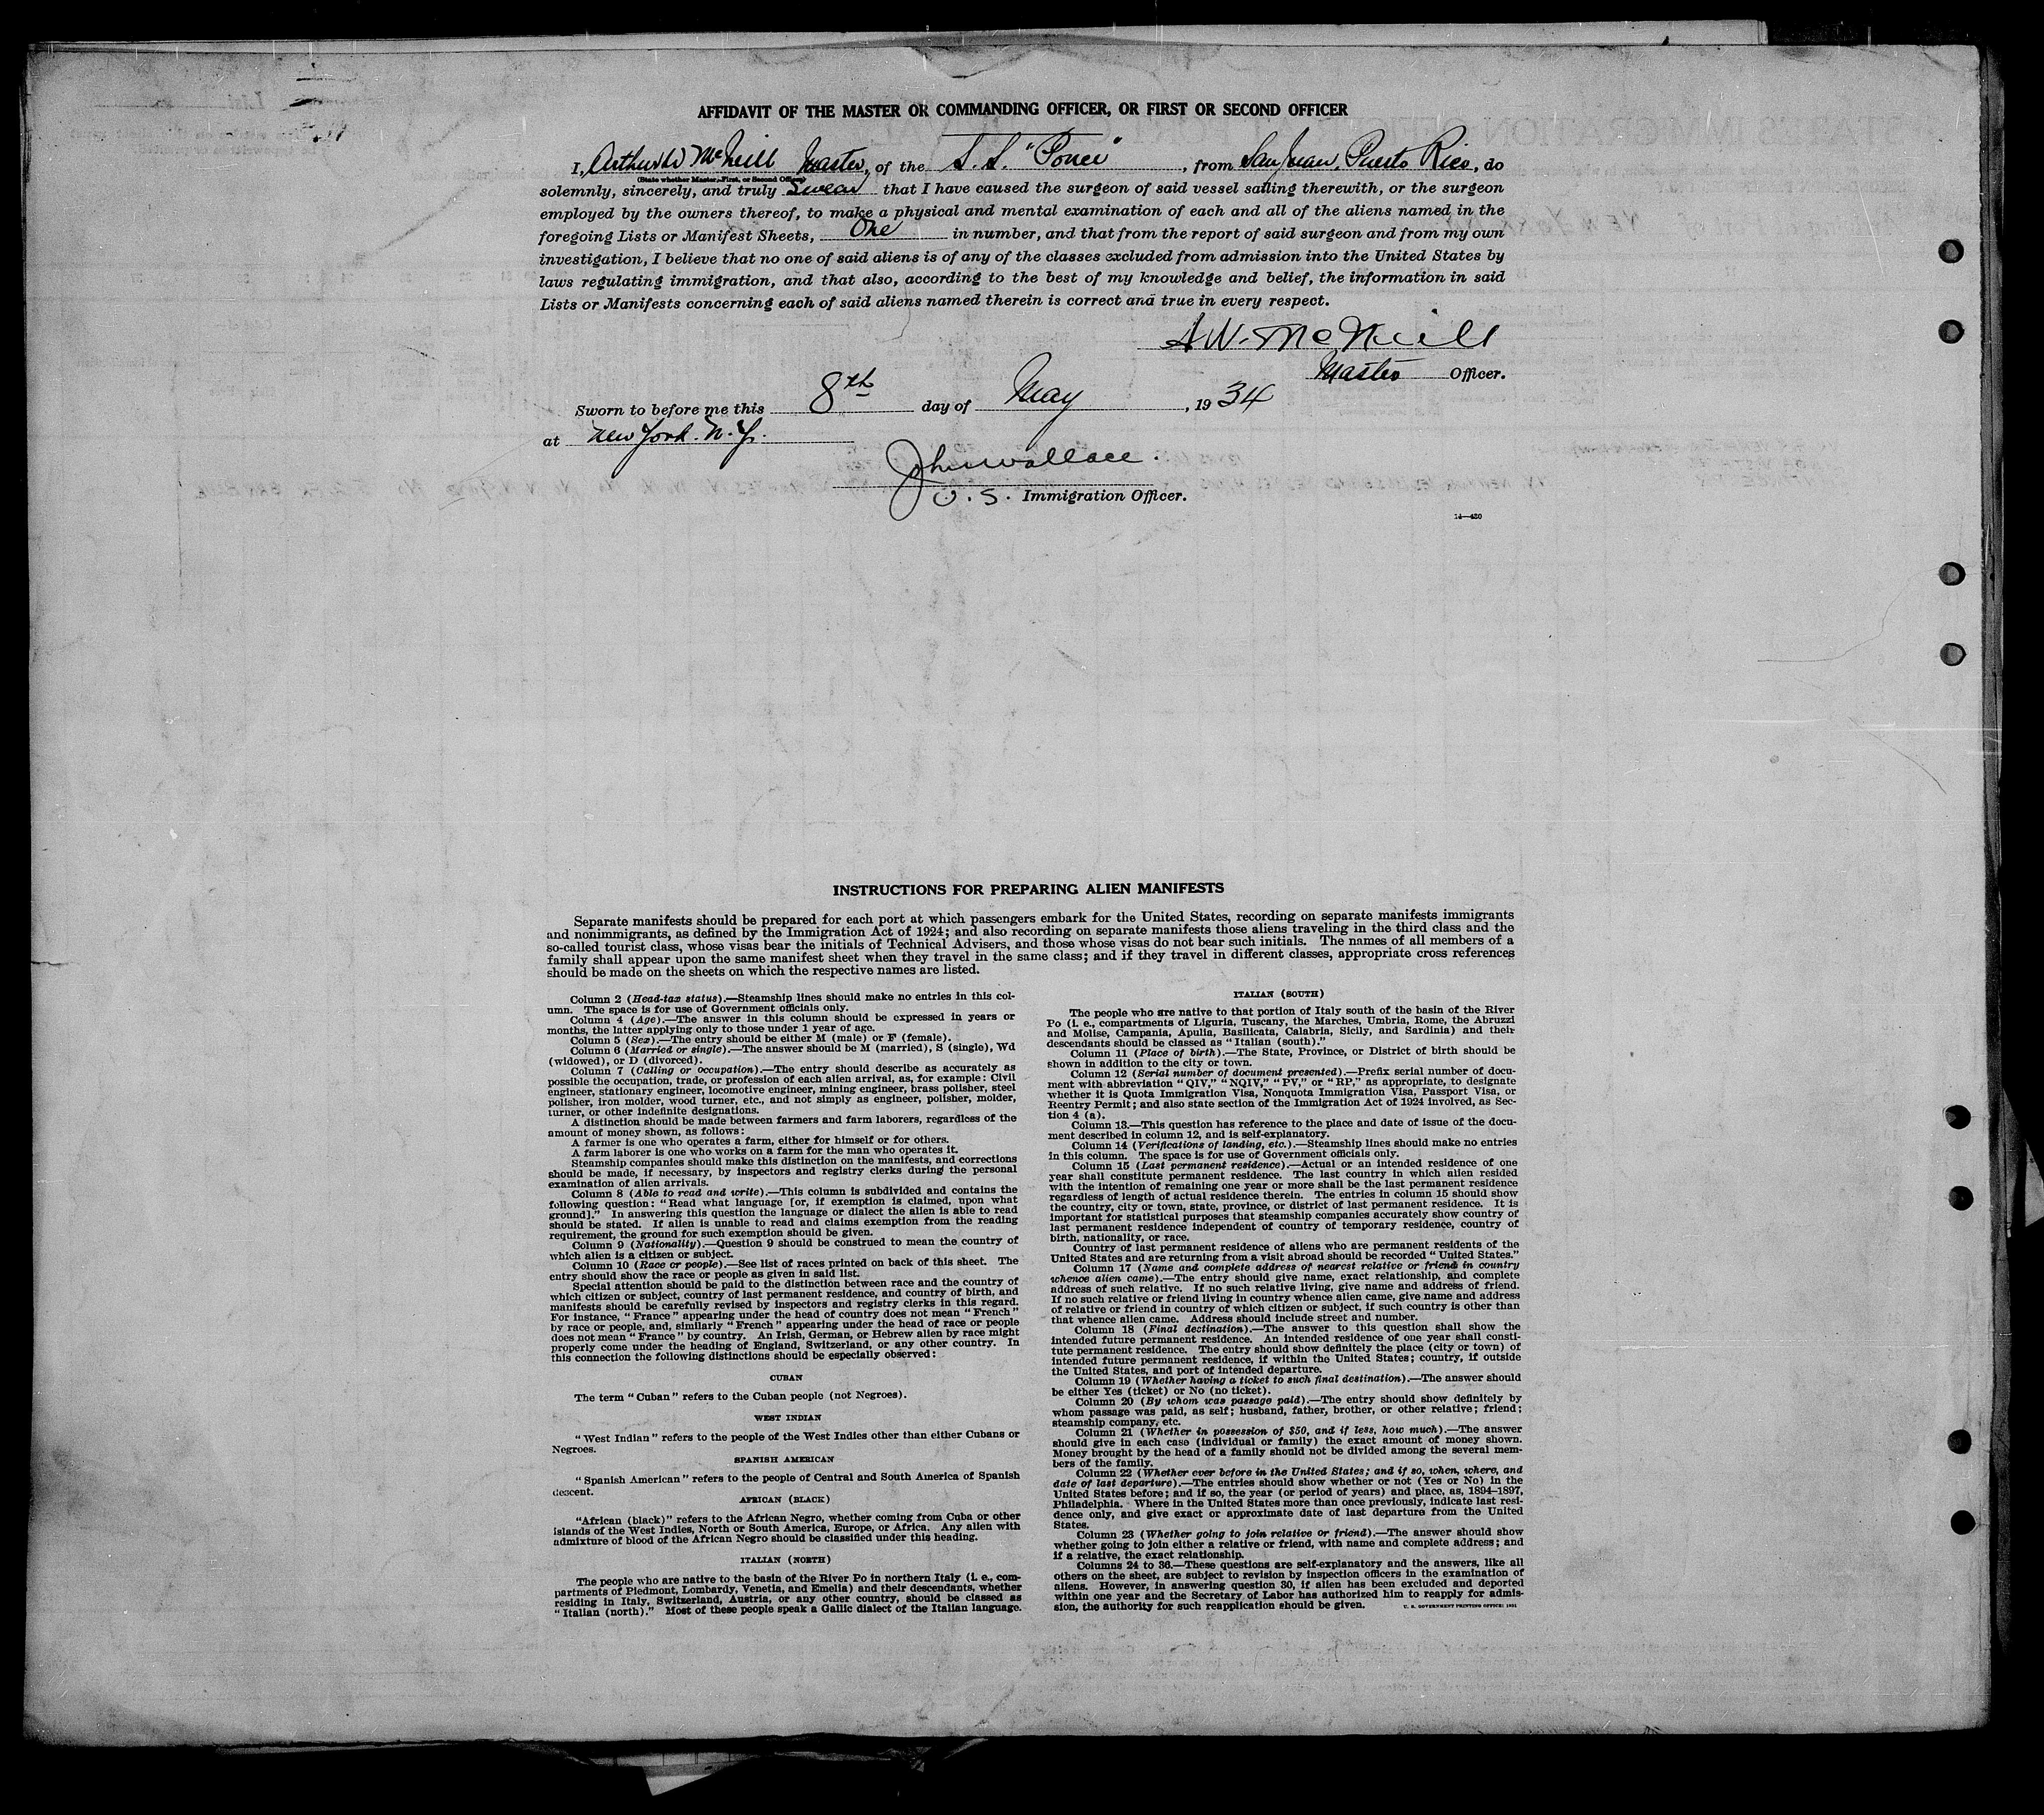 AFFIDAVIT OF THE MASTER OR COMMANDING OFFICER, OR FIRST OR SECOND OFFICER
I, Arthur W McNeill Master, of the S. S. "Ponce", from San Juan, Puerto Rico, do
(State whether Master, First, or Second Officer)
solemnly, sincerely, and truly Swear that I have caused the surgeon of said vessel sailing therewith, or the surgeon
employed by the owners thereof, to make a physical and mental examination of each and all of the aliens named in the
foregoing Lists or Manifest Sheets, One in number, and that from the report of said surgeon and from my own
investigation, I believe that no one of said aliens is of any of the classes excluded from admission into the United States by
laws regulating immigration, and that also, according to the best of my knowledge and belief, the information in said
Lists or Manifests concerning each of said aliens named therein is correct and true in every respect.
A W. McNeill
Master Officer.
Sworn to before me this 8th day of May, 1934
at New York. N. Y.
John Wallace.
U. S. Immigration Officer.
14—430
INSTRUCTIONS FOR PREPARING ALIEN MANIFESTS
Separate manifests should be prepared for each port at which passengers embark for the United States, recording on separate manifests immigrants
and nonimmigrants, as defined by the Immigration Act of 1924; and also recording on separate manifests those aliens traveling in the third class and the
so-called tourist class, whose visas bear the initials of Technical Advisers, and those whose visas do not bear such initials. The names of all members of a
family shall appear upon the same manifest sheet when they travel in the same class; and if they travel in different classes, appropriate cross references
should be made on the sheets on which the respective names are listed.
Column 2 (Head-tax status).—Steamship lines should make no entries in this col-
umn. The space is for use of Government officials only.
Column 4 (Age).—The answer in this column should be expressed in years or
months, the latter applying only to those under 1 year of age.
Column 5 (Sex).—The entry should be either M (male) or F (female).
Column 6 (Married or single).—The answer should be M (married), S (single), Wd
(widowed), or D (divorced).
Column 7 (Calling or occupation).—The entry should describe as accurately as
possible the occupation, trade, or profession of each alien arrival, as, for example: Civil
engineer, stationary engineer, locomotive engineer, mining engineer, brass polisher, steel
polisher, iron molder, wood turner, etc., and not simply as engineer, polisher, molder,
turner, or other indefinite designations.
A distinction should be made between farmers and farm laborers, regardless of the
amount of money shown, as follows:
A farmer is one who operates a farm, either for himself or for others.
A farm laborer is one who works on a farm for the man who operates it.
Steamship companies should make this distinction on the manifests, and corrections
should be made, if necessary, by inspectors and registry clerks during the personal
examination of alien arrivals.
Column 8 (Able to read and write).—This column is subdivided and contains the
following question: "Read what language [or, if exemption is claimed, upon what
ground]." In answering this question the language or dialect the alien is able to read
should be stated. If alien is unable to read and claims exemption from the reading
requirement, the ground for such exemption should be given.
Column 9 (Nationality).—Question 9 should be construed to mean the country of
which alien is a citizen or subject.
Column 10 (Race or people).—See list of races printed on back of this sheet. The
entry should show the race or people as given in said list.
Special attention should be paid to the distinction between race and the country of
which citizen or subject, country of last permanent residence, and country of birth, and
manifests should be carefully revised by inspectors and registry clerks in this regard.
For instance, "France" appearing under the head of country does not mean "French"
by race or people, and, similarly "French" appearing under the head of race or people
does not mean "France" by country. An Irish, German, or Hebrew alien by race might
properly come under the heading of England, Switzerland, or any other country. In
this connection the following distinctions should be especially observed:
CUBAN
The term "Cuban" refers to the Cuban people (not Negroes).
WEST INDIAN
"West Indian" refers to the people of the West Indies other than either Cubans or
Negroes.
SPANISH AMERICAN
"Spanish American" refers to the people of Central and South America of Spanish
descent.
AFRICAN (BLACK)
"African (black)" refers to the African Negro, whether coming from Cuba or other
islands of the West Indies, North or South America, Europe, or Africa. Any alien with
admixture of blood of the African Negro should be classified under this heading.
ITALIAN (NORTH)
The people who are native to the basin of the River Po in northern Italy (i. e., com-
partments of Piedmont, Lombardy, Venetia, and Emelia) and their descendants, whether
residing in Italy, Switzerland, Austria, or any other country, should be classed as
"Italian (north)." Most of these people speak a Gallic dialect of the Italian language.
ITALIAN (SOUTH)
The people who are native to that portion of Italy south of the basin of the River
Po (i. e., compartments of Liguria, Tuscany, the Marches, Umbria, Rome, the Abruzzi
and Molise, Campania, Apulia, Basilicata, Calabria, Sicily, and Sardinia) and their
descendants should be classed as "Italian (south)."
Column 11 (Place of birth).—The State, Province, or District of birth should be
shown in addition to the city or town.
Column 12 (Serial number of document presented).—Prefix serial number of docu-
ment with abbreviation "QIV," "NQIV," "PV," or "RP," as appropriate, to designate
whether it is Quota Immigration Visa, Nonquota Immigration Visa, Passport Visa, or
Reentry Permit; and also state section of the Immigration Act of 1924 involved, as Sec-
tion 4 (a).
Column 13.—This question has reference to the place and date of issue of the docu-
ment described in column 12, and is self-explanatory.
Column 14 (Verifications of landing, etc.).—Steamship lines should make no entries
in this column. The space is for use of Government officials only.
Column 15 (Last permanent residence).—Actual or an intended residence of one
year shall constitute permanent residence. The last country in which alien resided
with the intention of remaining one year or more shall be the last permanent residence
regardless of length of actual residence therein. The entries in column 15 should show
the country, city or town, state, province, or district of last permanent residence. It is
important for statistical purposes that steamship companies accurately show country of
last permanent residence independent of country of temporary residence, country of
birth, nationality, or race.
Country of last permanent residence of aliens who are permanent residents of the
United States and are returning from a visit abroad should be recorded "United States."
Column 17 (Name and complete address of nearest relative or friend in country
whence alien came).—The entry should give name, exact relationship, and complete
address of such relative. If no such relative living, give name and address of friend.
If no such relative or friend living in country whence alien came, give name and address
of relative or friend in country of which citizen or subject, if such country is other than
that whence alien came. Address should include street and number.
Column 18 (Final dectination).—The answer to this question shall show the
intended future permanent residence. An intended residence of one year shall consti-
tute permanent residence. The entry should show definitely the place (city or town) of
intended future permanent residence, if within the United States; country, if outside
the United States, and port of intended departure.
Column 19 (Whether having a ticket to such final destination).—The answer should
be either Yes (ticket) or No (no ticket).
Column 20 (By whom was passage paid).—The entry should show definitely by
whom passage was paid, as self; husband, father, brother, or other relative; friend;
steamship company, etc.
Column 21 (Whether in possession of $50, and if less, how much).—The answer
should give in each case (individual or family) the exact amount of money shown.
Money brought by the head of a family should not be divided among the several mem-
bers of the family.
Column 22 (Whether ever before in the United States; and if so, when, where, and
date of last departure).—The entries should show whether or not (Yes or No) in the
United States before; and if so, the year (or period of years) and place, as, 1894–1897,
Philadelphia. Where in the United States more than once previously, indicate last resi-
dence only, and give exact or approximate date of last departure from the United
States.
Column 23 (Whether going to join relative or friend).—The answer should show
whether going to join either a relative or friend, with name and complete address; and
if a relative, the exact relationship.
Columns 24 to 36.—These questions are self-explanatory and the answers, like all
others on the sheet, are subject to revision by inspection officers in the examination of
aliens. However, in answering question 30, if alien has been excluded and deported
within one year and the Secretary of Labor has authorized him to reapply for admis-
sion, the authority for such reapplication should be given.
U. S. GOVERNMENT PRINTING OFFICE: 1931